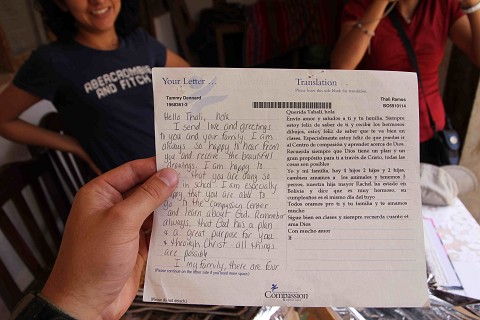 ABERCROMBIE
AND FITCH
Your Letter ...
Translation
Please leave this side blank for translation.
Tammy Dennard
Thali Ramos
BO5810114
Hello Thali, hola
I send love and greetings
to you and your family. I am
always so happy to hear from
you and receive the beautiful
drawings. I am happy to
that you are doing so
in school. I am especially
happy that you are able to
go to the Compassion Center
and learn about God. Remember
always that God has a plan
& a great purpose for you
& through Christ all things
are possible
I my family, there are four
(Please continue on the other side if you need more space)
Querida Tahali, hola
Envio amor y saludos a ti y tu familia. Siempre
estoy feliz de saber de ti y recibir los hermosos
dibujos, estoy feliz de saber que te ve bien en
clases. Especialmente estoy feliz de que puedas ir
al Centro de compasión y aprender acerca de Dios.
Recuerda siempre que Dios tiene un plan y un
gran propósito para ti a través de Cristo, todas las
cosas son posibles
Yo y mi familia, hay 4 hijos 2 hijos y 2 hijas,
también amamos a los animales y tenemos 2
perros, nuestra hija mayor Rachel ha estado en
Bolivia y dice que es muy hermoso, su
cumpleaños es el mismo día del tuyo
Todos oramos pro ti y tu familia y te amamos
mucho
Sigue bien en clases y siempre recuerda cuanto te
ama Dios
Con mucho amor
Compassion